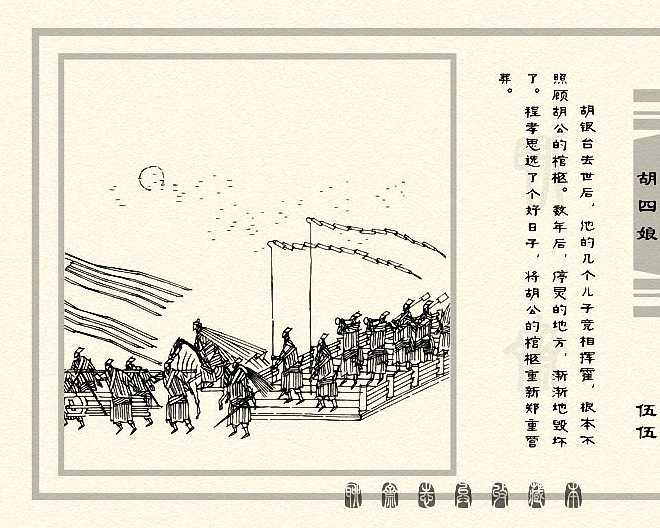 胡四娘
伍伍
胡银台去世后，他的几个儿子竞相挥霍，根本不
照顾胡公的棺柩。数年后，停灵的地方，渐渐地毁坏
了。程孝思选了个好日子，将胡公的棺柩重新郑重营
葬。
聊斋志异收藏本